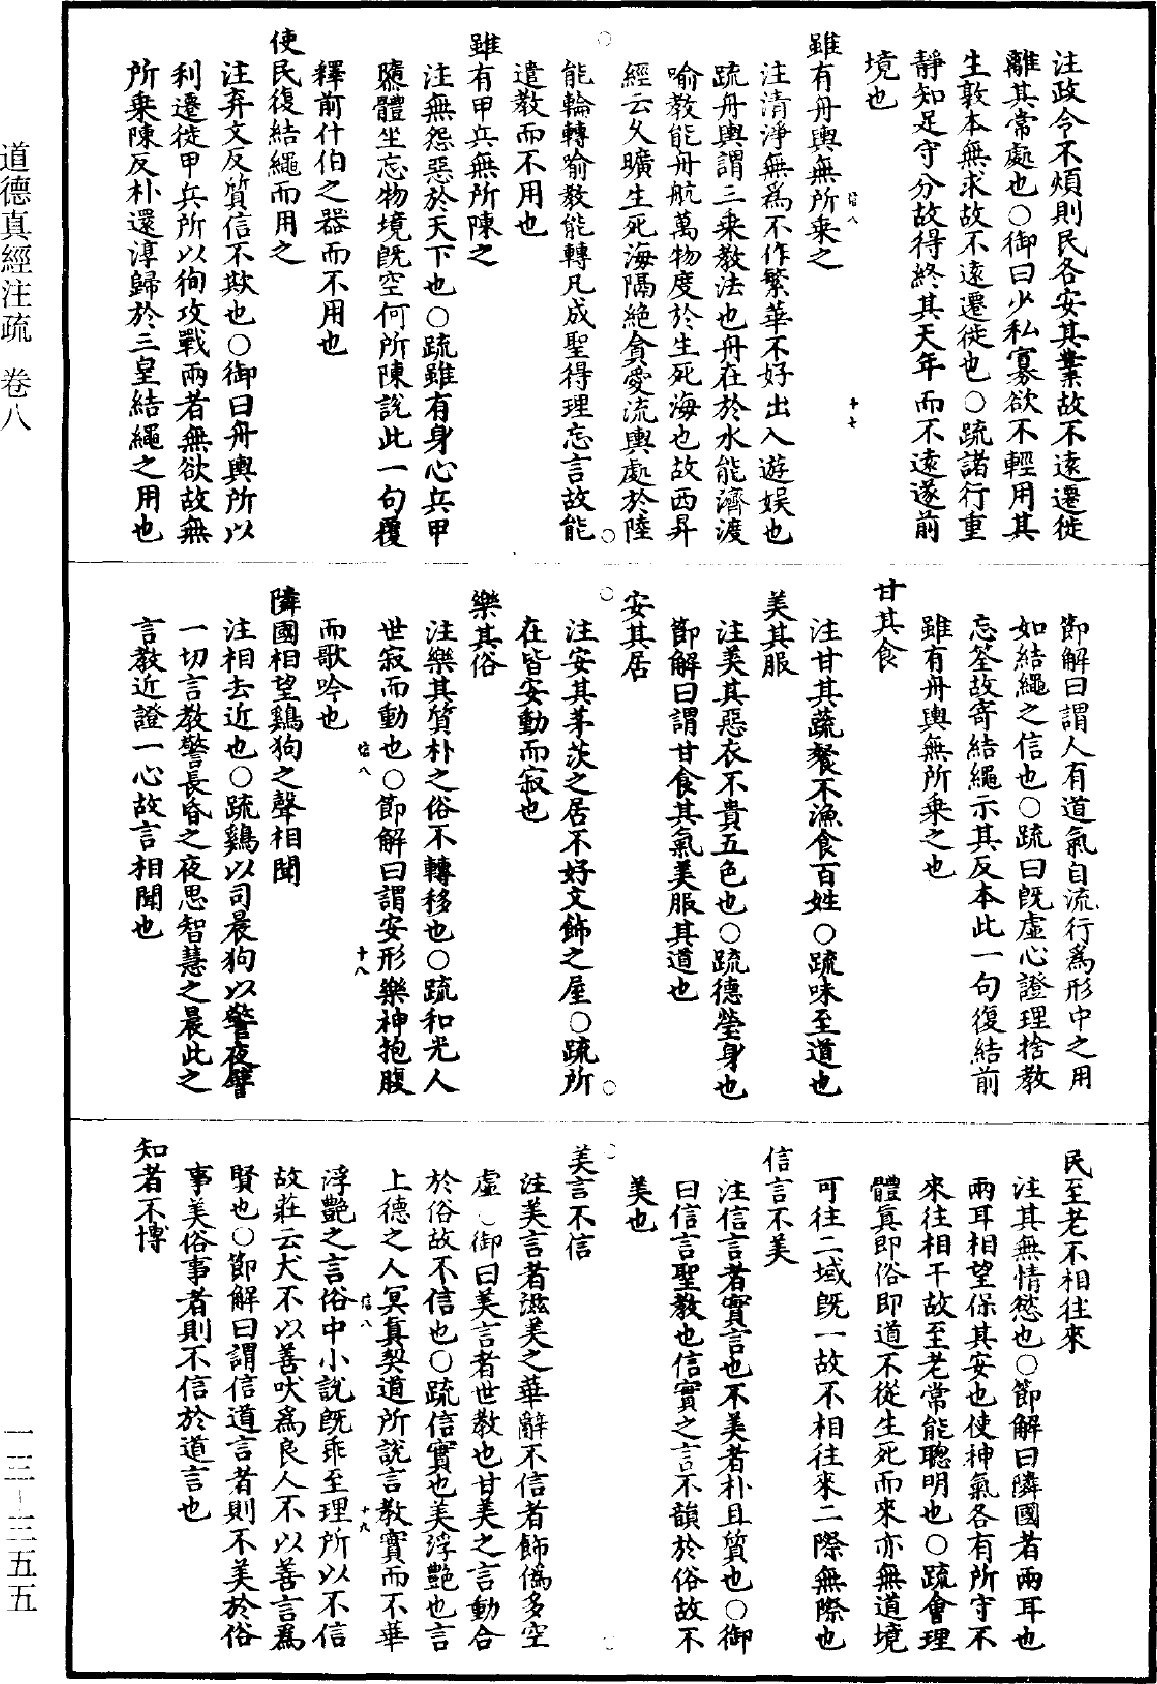 注政令不煩則民各安其業故不遠遷徙
離其常處也○御曰少私寡欲不輕用其
生敦本無求故不遠遷徙也○疏諸行重
靜知足守分故得終其天年而不遠遂前
境也
雖有舟輿無所乗之
注清淨無為不作繁華不好出入遊娱也
疏舟輿謂三乗教法也舟在於水能濟渡
喻教能舟航萬物度於生死海也故西昇
經云久曠生死海隔絶貪愛流輿處於陸
能輪轉喻教能轉凡成聖得理忘言故能
遣教而不用也
雖有甲兵無所陳之
注無怨惡於天下也○疏雖有身心兵甲
隳體坐忘物境既空何所陳說此一句覆
釋前什伯之器而不用也
使民復結繩而用之
注弃文反質信不欺也○御曰舟輿所以
利遷徙甲兵所以徇攻戰兩者無欲故無
所乗陳反朴還淳歸於三皇結繩之用也
節解曰謂人有道氣自流行爲形中之用
如結繩之信也○疏曰既虚心證理捨教
忘筌故寄結繩示其反本此一句復結前
雖有舟輿無所乗之也
甘其食
注甘其蔬餐不漁食百姓○疏味至道也
美其服
注美其惡衣不貴五色也○疏德瑩身也
節解曰謂甘食其氣美服其道也
安其居
注安其茅茨之居不好文飾之屋○疏所
在皆安動而寂也
樂其俗
注樂其質朴之俗不轉移也○疏和光人
世寂而動也○節解曰謂安形樂神抱腹
而歌吟也
隣國相望鷄狗之聲相聞
注相去近也○疏鷄以司晨狗以警夜譬
一切言教警長昏之夜思智慧之晨此之
言教近證一心故言相聞也
民至老不相往來
注其無情慾也○節解曰隣國者兩耳也
兩耳相望保其安也使神氣各有所守不
來往相干故至老常能聰明也○疏會理
體真即俗即道不從生死而來亦無道境
可往二域既一故不相往來二際無際也
信言不美
注信言者實言也不美者朴且質也○御
曰信言聖教也信實之言不韻於俗故不
美也
美言不信
注美言者滋美之華辭不信者飾僞多空
虚○御曰美言者世教也甘美之言動合
於俗故不信也○疏信實也美浮艷也言
上德之人冥真契道所說言教實而不華
浮艷之言俗中小說既乖至理所以不信
故莊云犬不以善吠爲良人不以善言爲
賢也○節解曰謂信道言者則不美於俗
事美俗事者則不信於道言也
知者不博
信八
十七
信八
十八
信八
十九
道德真經注疏 卷八
一三—三五五